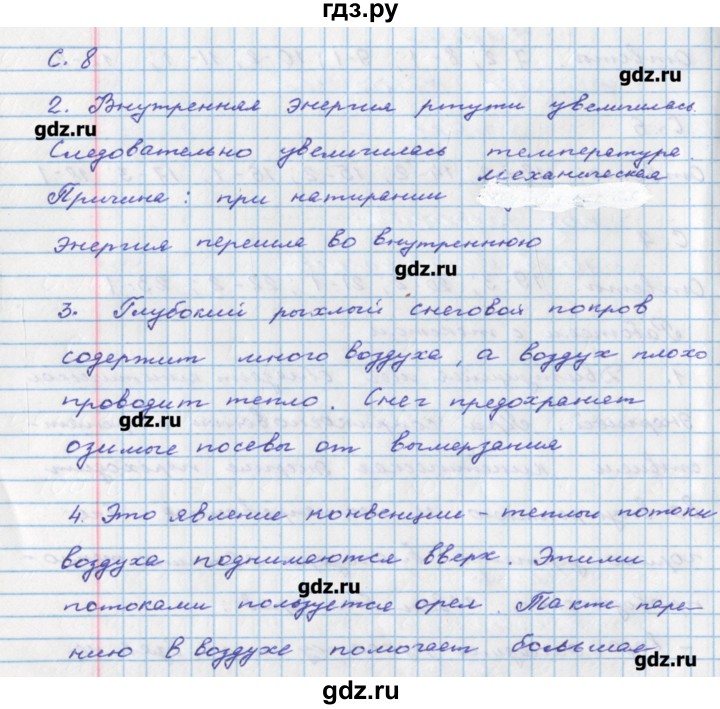 гдз.ру
С. 8
gdz.ru
2. Внутренняя энергия ртути увеличилась.
gdz.ru
Следовательно увеличилась температура.
механическая
Причина: при натирании
энергия перешла во внутреннюю
gdz.ru
3. Глубокий рыхлый снеговой покров
содержит много воздуха, а воздух плохо
проводит тепло. Снег предохраняет
gdz.ru
озимые посевы от вымерзания
4. Это явление конвенции - теплые потоки
воздуха поднимаются вверх. Этими
gdz.ru
потоками пользуется орел. Также паре-
нию в воздухе помогает большая
gdz.ru
gdz.ru